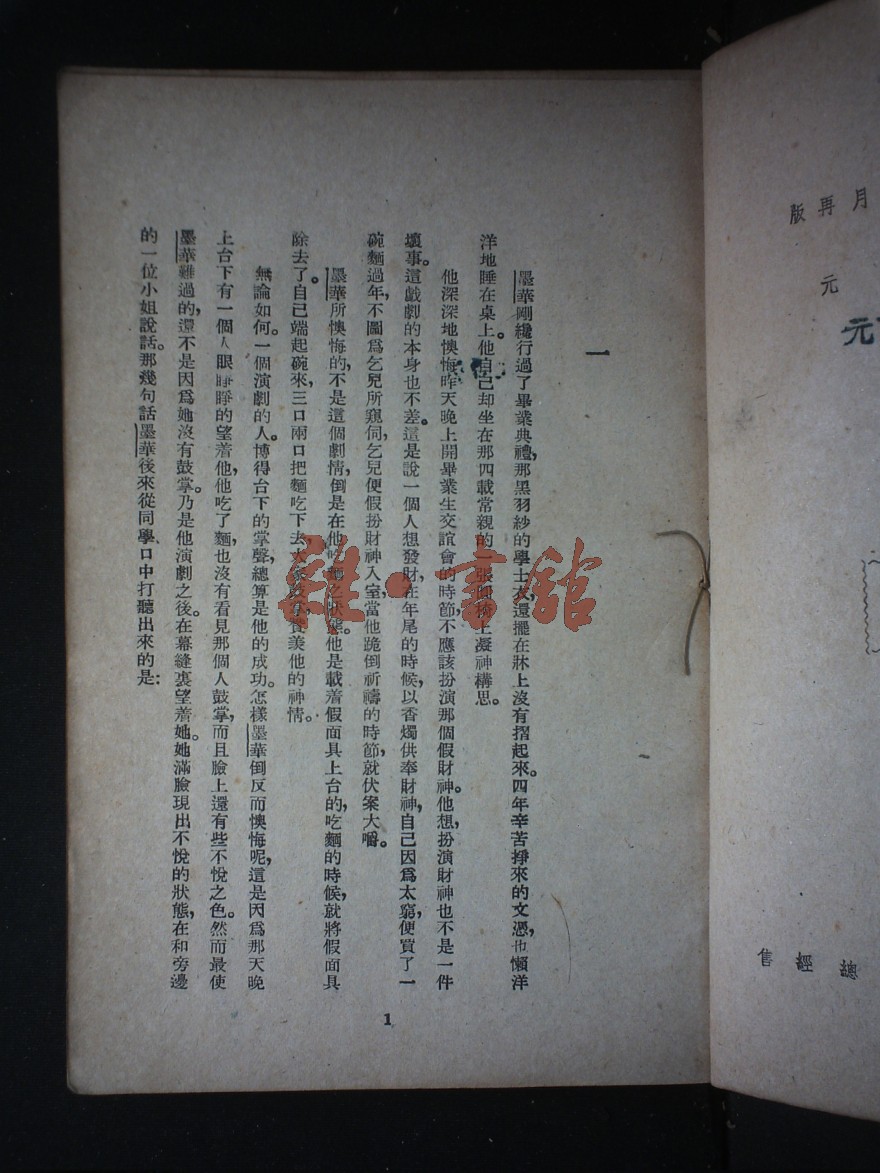 月再版
元
元
總經售
一
墨華剛纔行過了畢業典禮,那黑羽紗的學士衣,還擺在牀上沒有摺起來。四年辛苦掙來的文憑,也懶洋
洋地睡在桌上。他自己却坐在那四載常親的一張圈椅上凝神構思。
他深深地懊悔昨天晚上開畢業生交誼會的時節,不應該扮演那個假財神。他想,扮演財神也不是一件
壞事。這戲劇的本身也不差。這是說一個人想發財,在年尾的時候,以香燭供奉財神,自己因爲太窮,便買了一
碗麵過年,不圖爲乞兒所窺伺,乞兒便假扮財神入室,當他跪倒祈禱的時節,就伏案大嚼。
墨華所懊悔的,不是這個劇情,倒是在他吃麵之狀態。他是載着假面具上台的,吃麵的時候,就將假面具
除去了。自己端起碗來,三口兩口把麵吃下去,大家鼓掌羨他的神情。
無論如何。一個演劇的人。博得台下的掌聲,總算是他的成功。怎樣墨華倒反而懊悔呢,這是因爲那天晚
上台下有一個人眼睜睜的望着他,他吃了麵,也沒有看見那個人鼓掌,而且臉上還有些不悅之色。然而最使
墨華難過的,還不是因爲她沒有鼓掌。乃是他演劇之後。在幕縫裏望着她。她滿臉現出不悅的狀態,在和旁邊
的一位小姐說話。那幾句話墨華後來從同學口中打聽出來的是:
1
雜·書館